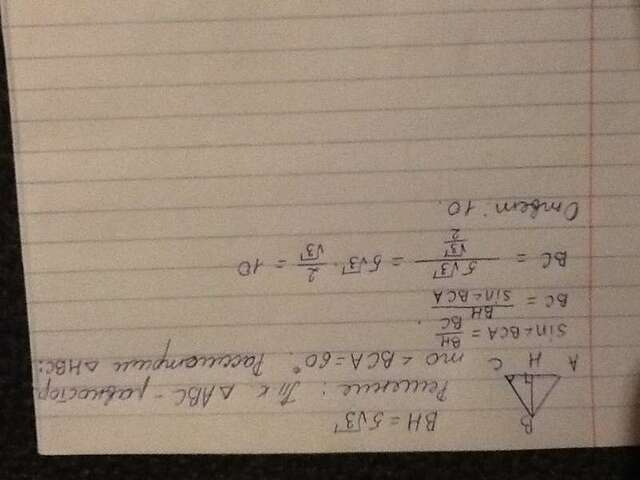 BH = 5√3
Решение: Т.к ΔABC - равностор
то ∠BCA = 60°. Рассмотрим ΔHBC:
B
A H C
sin∠BCA = BH/BC.
BC = BH/sin∠BCA
BC = 5√3/(√3/2) = 5√3 · 2/√3 = 10
Ответ: 10.